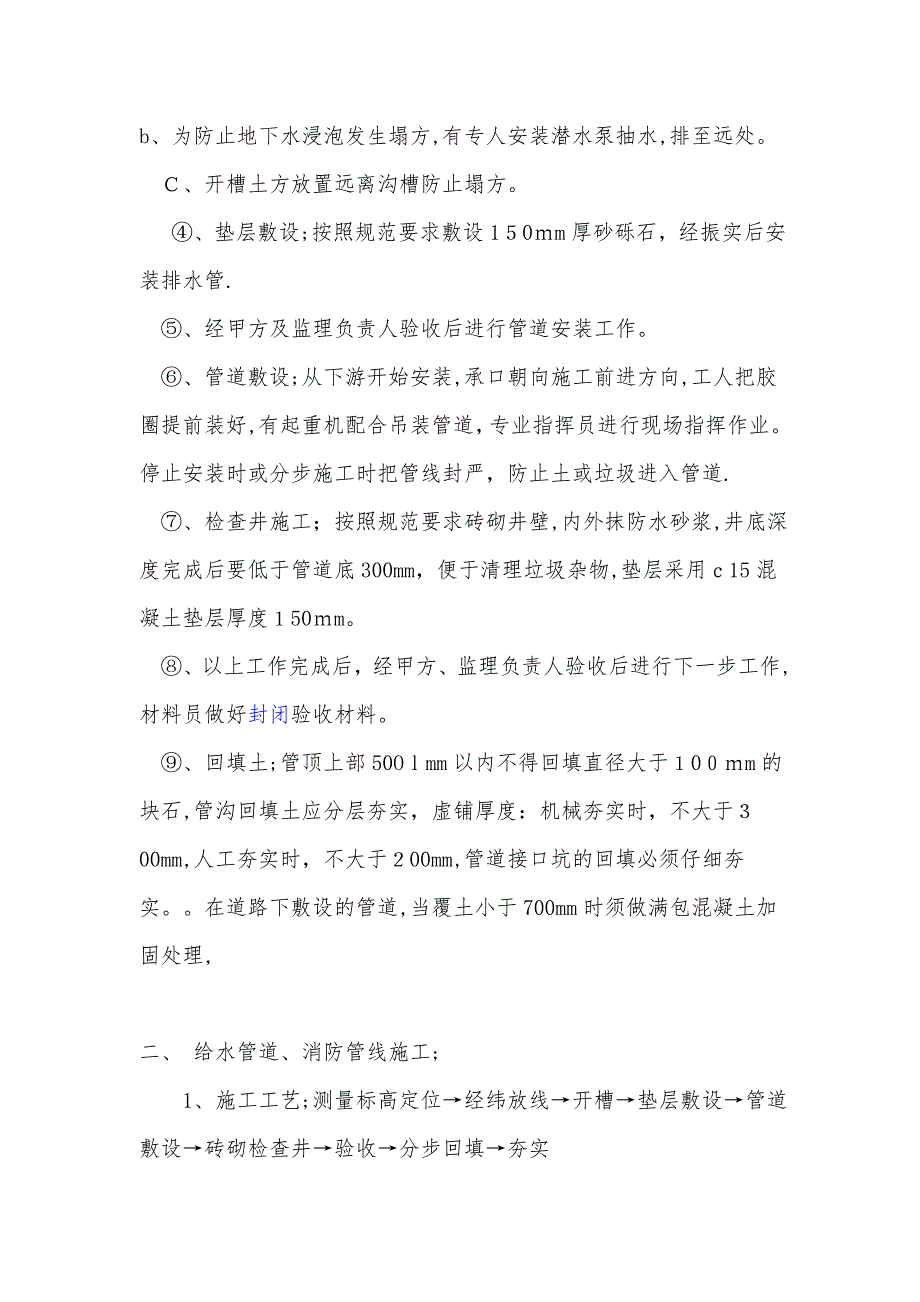 b、为防止地下水浸泡发生塌方,有专人安装潜水泵抽水,排至远处。
C、开槽土方放置远离沟槽防止塌方。
④、垫层敷设;按照规范要求敷设150mm厚砂砾石，经振实后安
装排水管.
⑤、经甲方及监理负责人验收后进行管道安装工作。
⑥、管道敷设;从下游开始安装,承口朝向施工前进方向,工人把胶
圈提前装好,有起重机配合吊装管道，专业指挥员进行现场指挥作业。
停止安装时或分步施工时把管线封严，防止土或垃圾进入管道.
⑦、检查井施工；按照规范要求砖砌井壁,内外抹防水砂浆,井底深
度完成后要低于管道底300mm，便于清理垃圾杂物,垫层采用c15混
凝土垫层厚度150mm。
⑧、以上工作完成后，经甲方、监理负责人验收后进行下一步工作,
材料员做好封闭验收材料。
⑨、回填土;管顶上部500lmm以内不得回填直径大于100mm的
块石,管沟回填土应分层夯实，虚铺厚度：机械夯实时，不大于3
00mm,人工夯实时，不大于200mm,管道接口坑的回填必须仔细夯
实。。在道路下敷设的管道,当覆土小于700mm时须做满包混凝土加
固处理,
二、 给水管道、消防管线施工;
1、施工工艺;测量标高定位→经纬放线→开槽→垫层敷设→管道
敷设→砖砌检查井→验收→分步回填→夯实